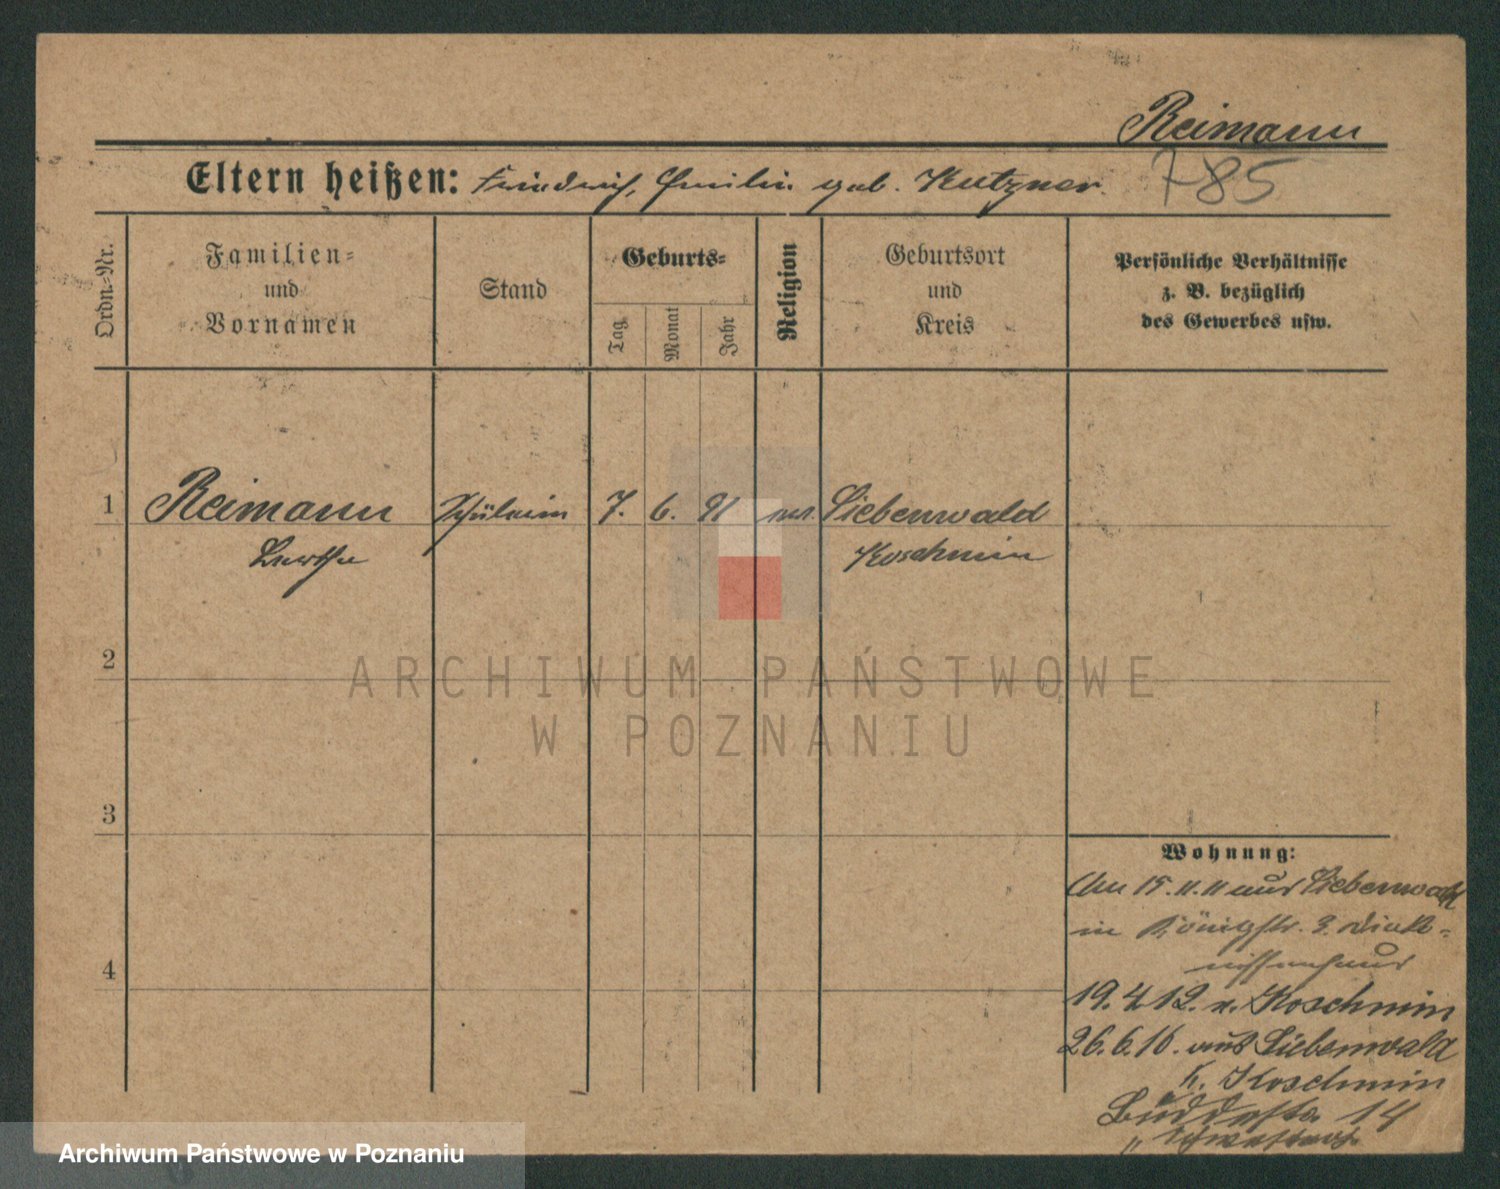 Reimann
Eltern heißen: Friedrich, Emilie geb. Kutzner.
785
Ordn.-Nr.
Familien-
und
Vornamen
Stand
Geburts-
Tag
Monat
Jahr
Religion
Geburtsort
und
Kreis
Persönliche Verhältnisse
z. B. bezüglich
des Gewerbes usw.
1 Reimann Schülerin 7. 6. 91 ev. Liebenwald
Berthe Koschmin
2
3
4
Wohnung:
Am 15.11.11 aus Liebenwald
in Königstr. 3. Diako-
nissenhaus
19.4 12. n. Koschmin
26.6.16. aus Liebenwald
K. Koschmin
14
" Schwestern
ARCHIWUM PAŃSTWOWE
W POZNANIU
Archiwum Państwowe w Poznaniu